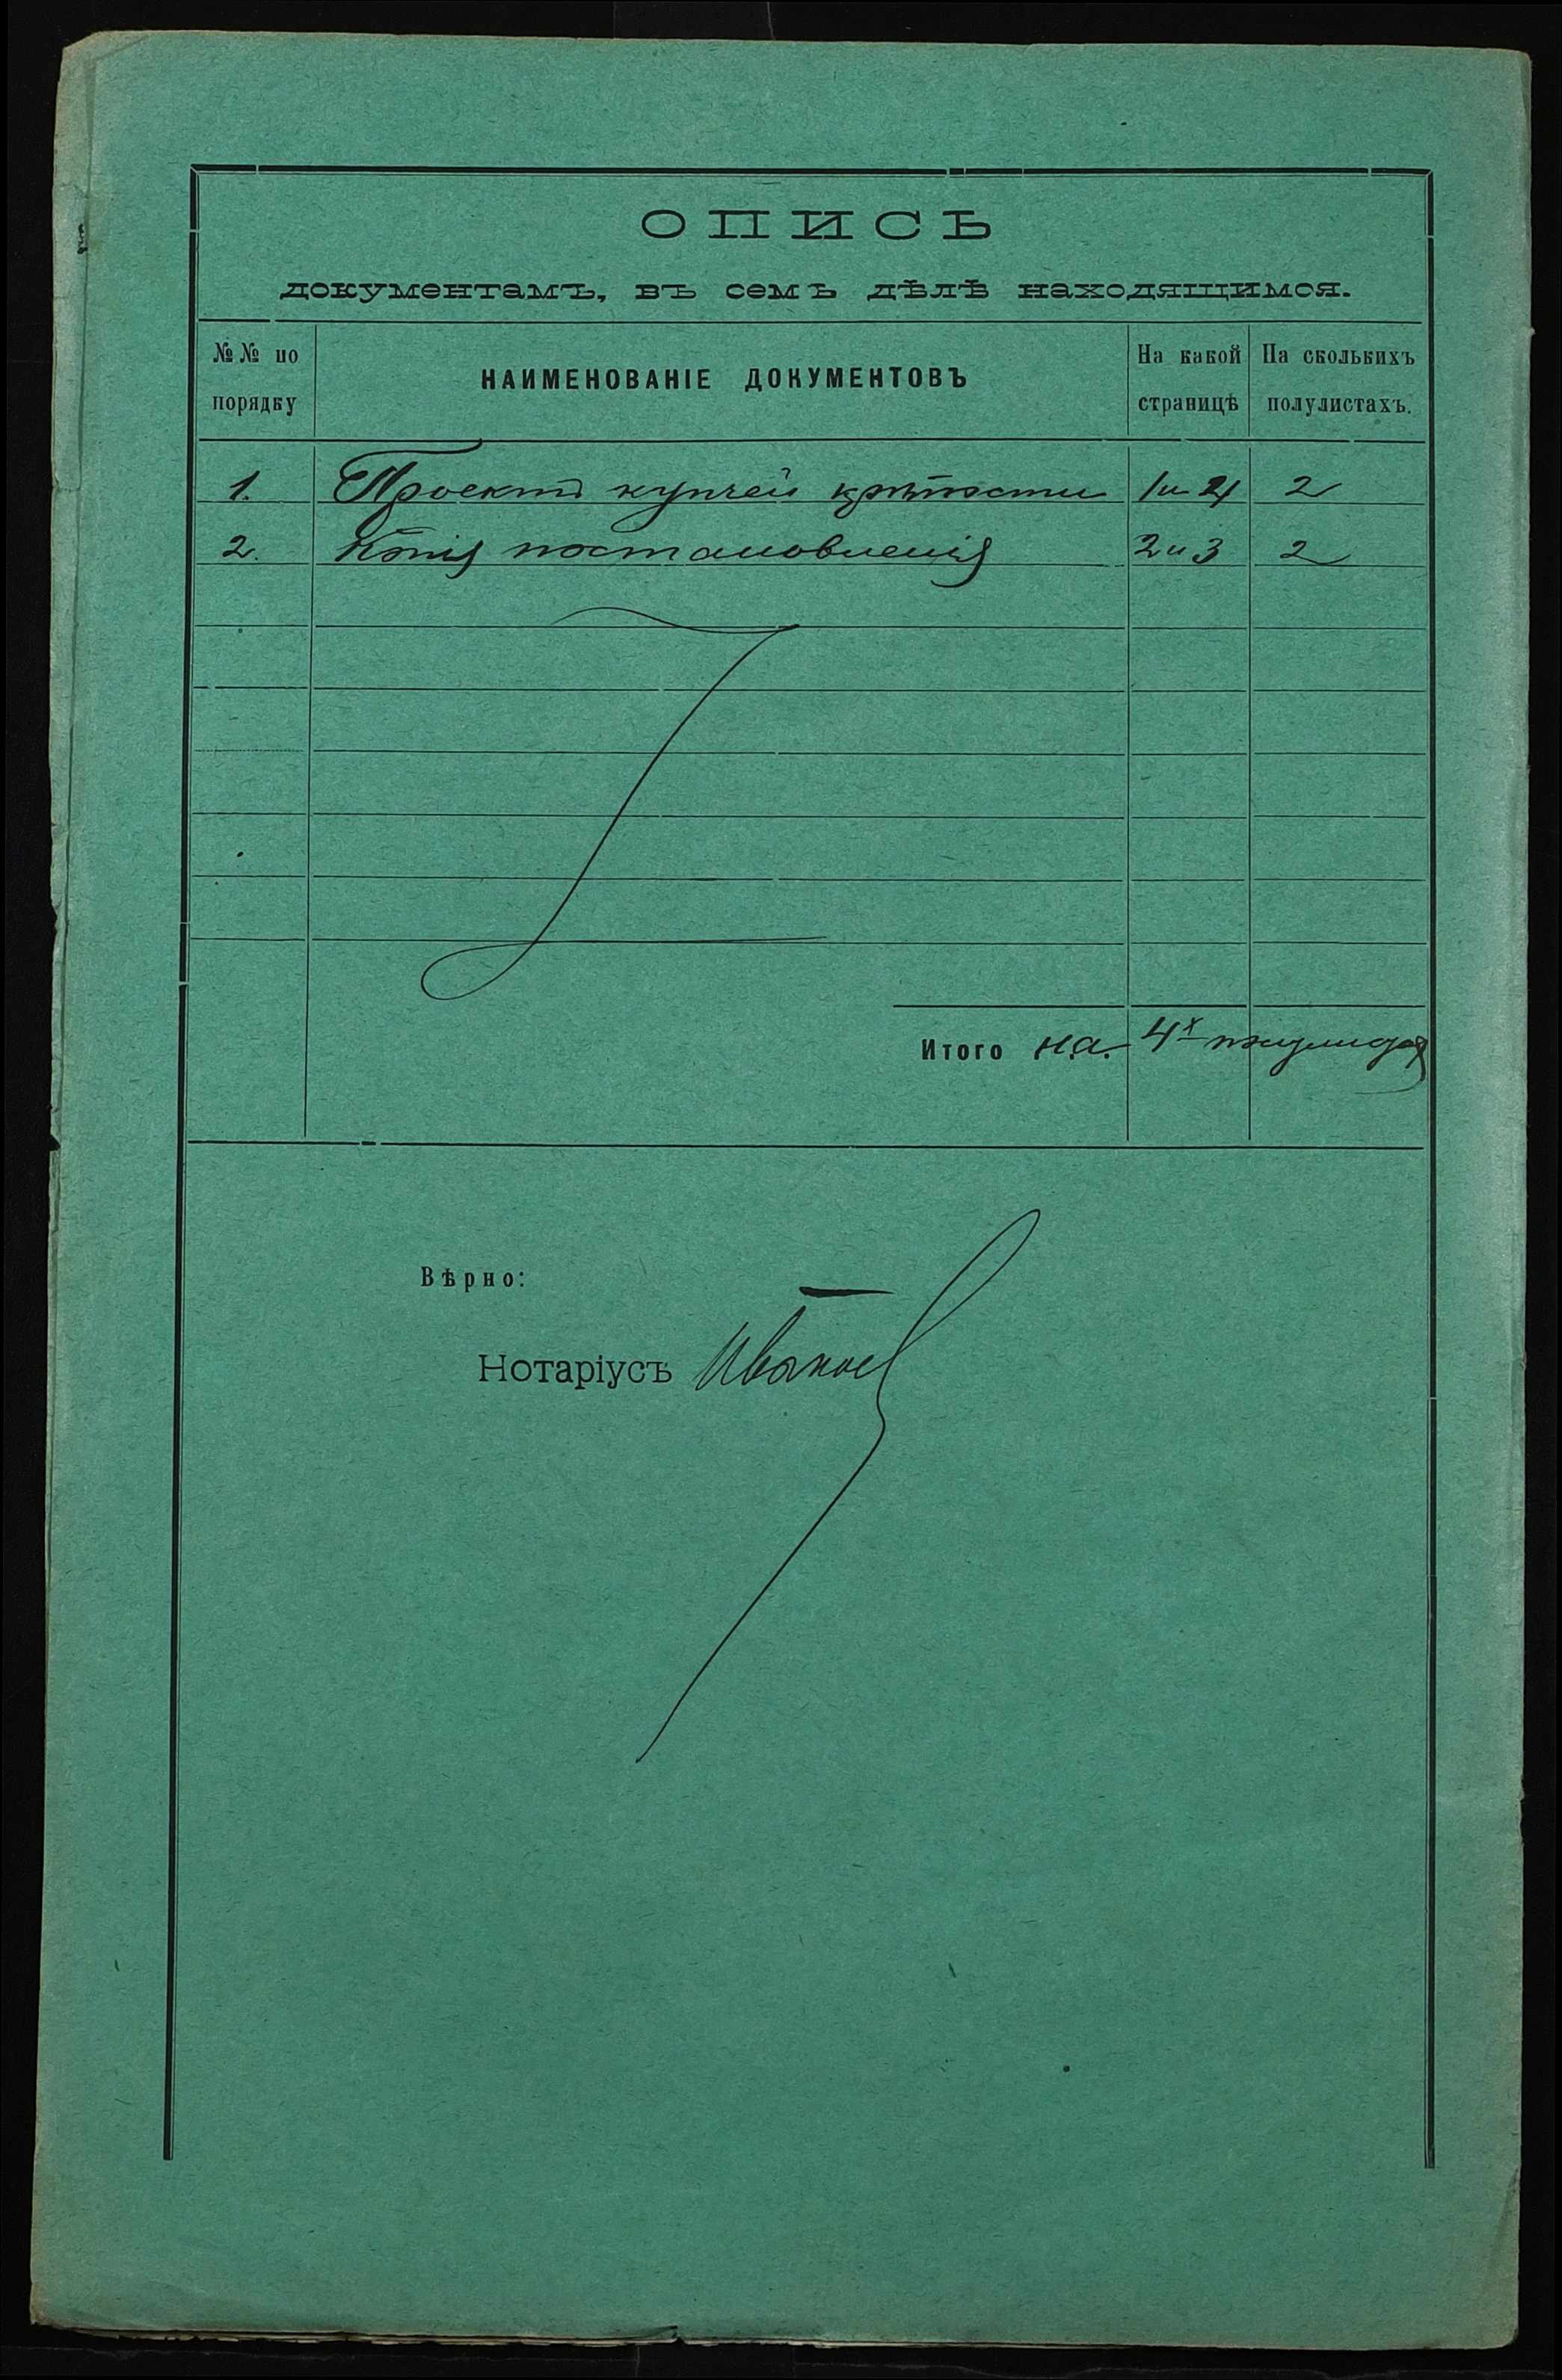 ОПИСЬ
документамъ, въ семъ дѣлѣ находящимся.
№№ по порядку
НАИМЕНОВАНІЕ ДОКУМЕНТОВЪ
На какой страницѣ
На сколькихъ полулистахъ.
1. Проектъ купчей крѣпости 1 и 4 2
2. Копія постановленія 2 и 3 2
Итого на 4х
Вѣрно:
Нотаріусъ Иванов